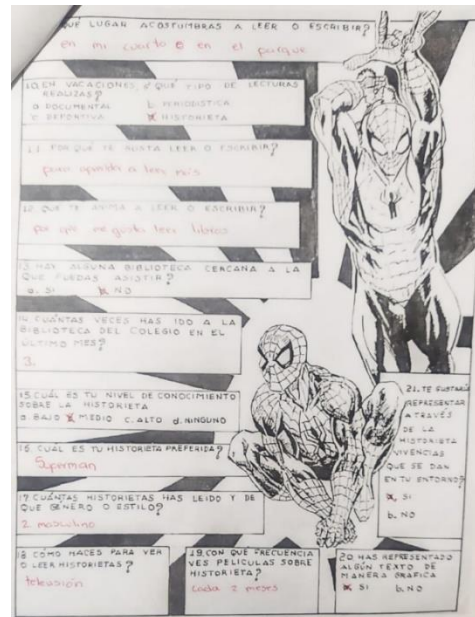 QUE LUGAR ACOSTUMBRAS A LEER O ESCRIBIR?
en mi cuarto o en el parque
10. EN VACACIONES, QUÉ TIPO DE LECTURAS
REALIZAS?
a. DOCUMENTAL b. PERIODISTICA
c. DEPORTIVA HISTORIETA
11. POR QUÉ TE GUSTA LEER O ESCRIBIR?
para aprender a leer más
12. QUE TE A LEER O ESCRIBIR?
por que me gusta leer libros
13. HAY ALGUNA BIBLIOTECA CERCANA A LA
QUE PUEDAS ASISTIR?
a. SI NO
14. CUÁNTAS VECES HAS IDO A LA
BIBLIOTECA DEL COLEGIO EN EL
ÚLTIMO MES?
3.
15. CUÁL ES TU NIVEL DE CONOCIMIENTO
SOBRE LA HISTORIETA
a. BAJO MEDIO C. ALTO d. NINGUNO
16. CUÁL ES TU HISTORIETA PREFERIDA?
Superman
17. CUÁNTAS HISTORIETAS HAS LEIDO Y DE
QUE GÉNERO O ESTILO?
2 masculino
18. COMO HACES PARA VER
O LEER HISTORIETAS?
televisión
19. CON QUÉ FRECUENCIA
VES PELICULAS SOBRE
HISTORIETA?
Cada 2 meses
20. HAS REPRESENTADO
ALGÚN TEXTO DE
MANERA GRAFICA
SI b. NO
21. TE GUSTARÍA
REPRESENTAR
A TRAVÉS
DE LA
HISTORIETA
VIVENCIAS
QUE SE DAN
EN TU ENTORNO?
SI
b. NO